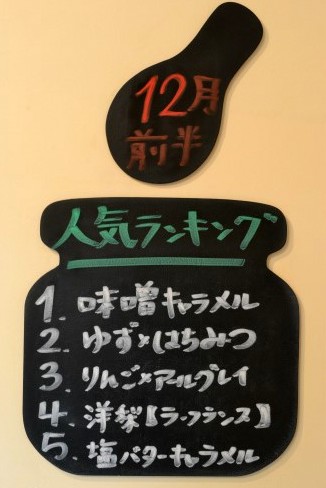 12月
前半
人気ランキング
1. 味噌キャラメル
2. ゆず×はちみつ
3. りんご×アールグレイ
4. 洋梨【ラ・フランス】
5. 塩バターキャラメル